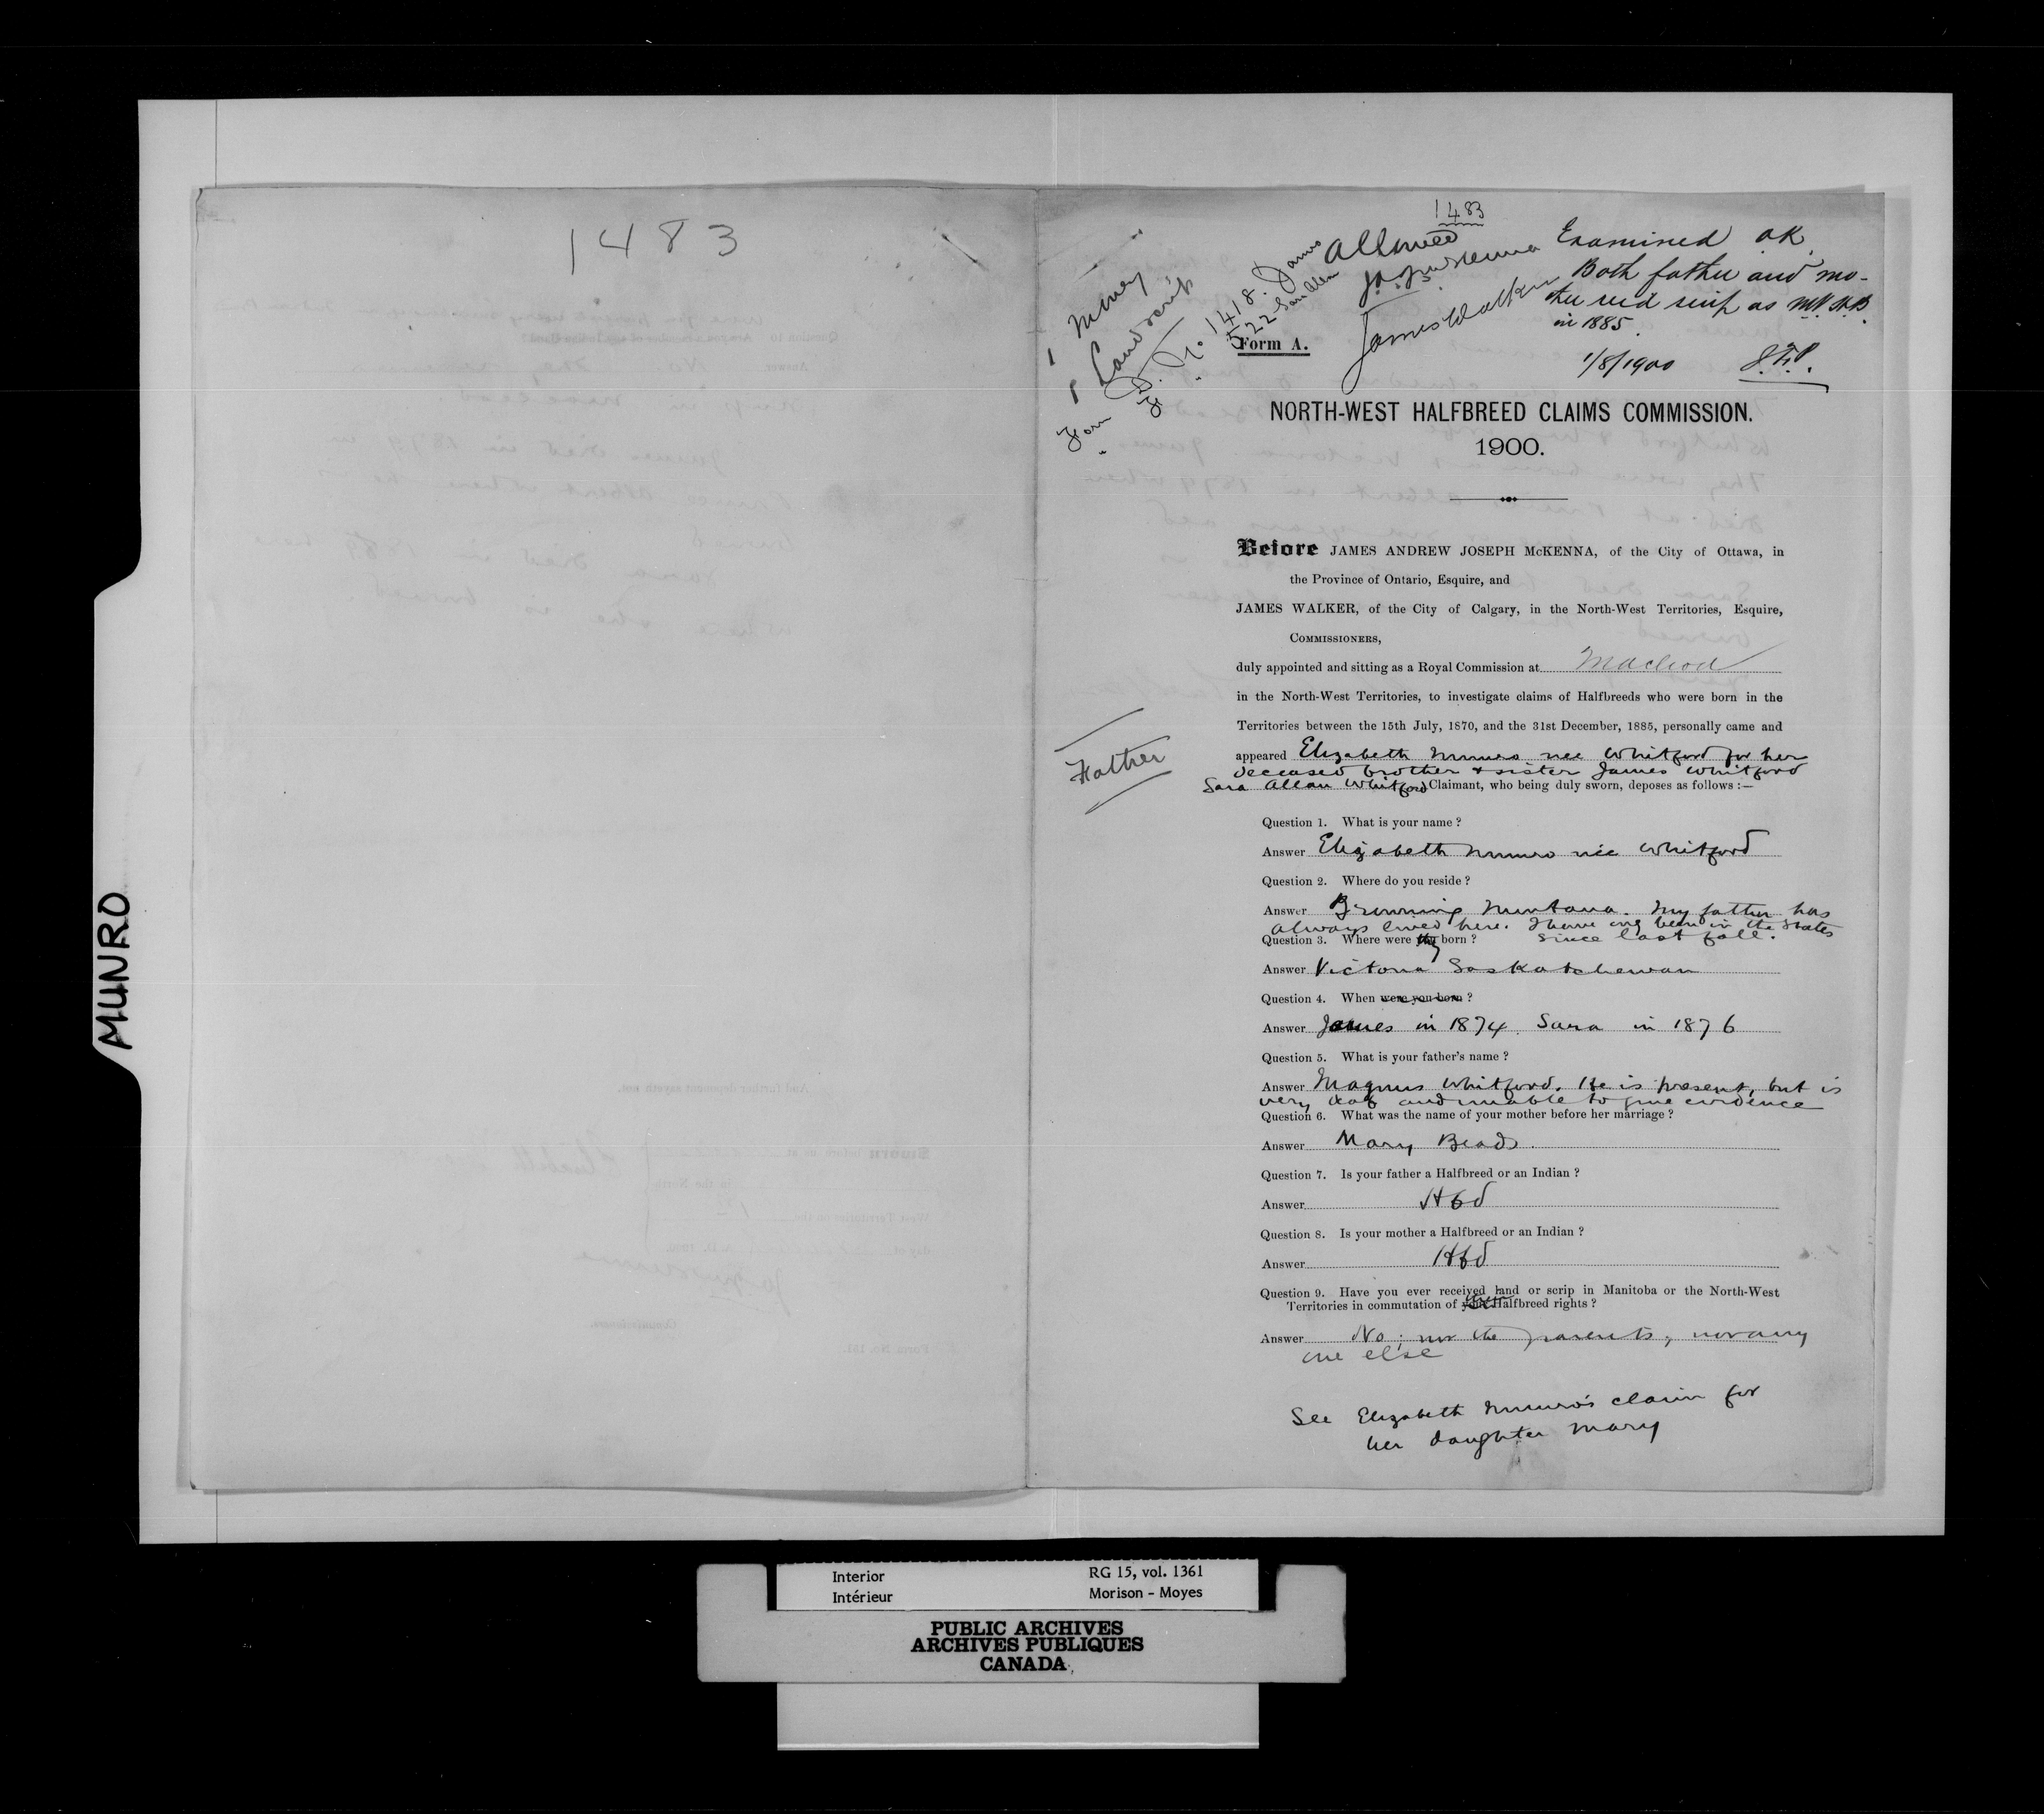 MUNRO
1483
1483
Allowed
J.A.J. McKenna
James Walker
Examined OK.
Both father and mo-
ther rec'd scrip as N.W.H.B.
in 1885.
1/8/1900
1 Money
1 Land scrip
Form D. No 1418. James
" 522 Sara Allan
Form A.
NORTH-WEST HALFBREED CLAIMS COMMISSION.
1900.
Before JAMES ANDREW JOSEPH McKENNA, of the City of Ottawa, in
the Province of Ontario, Esquire, and
JAMES WALKER, of the City of Calgary, in the North-West Territories, Esquire,
COMMISSIONERS,
duly appointed and sitting as a Royal Commission at Macleod
in the North-West Territories, to investigate claims of Halfbreeds who were born in the
Territories between the 15th July, 1870, and the 31st December, 1885, personally came and
Father
appeared Elizabeth Munro nee Whitford for her
deceased brother & sister James Whitford
Sara Allan Whitford Claimant, who being duly sworn, deposes as follows :—
Question 1. What is your name ?
Answer Elizabeth Munro née Whitford
Question 2. Where do you reside ?
Answer Browning Montana. My father has
always lived here. I have only been in the States
since last fall.
Question 3. Where were they born ?
Answer Victoria Saskatchewan
Question 4. When were you born ?
Answer James in 1874. Sara in 1876
Question 5. What is your father's name ?
Answer Magnus Whitford. He is present, but is
very deaf and unable to give evidence
Question 6. What was the name of your mother before her marriage ?
Answer Mary Beads.
Question 7. Is your father a Halfbreed or an Indian ?
Answer Hbd
Question 8. Is your mother a Halfbreed or an Indian ?
Answer Hbd
Question 9. Have you ever received land or scrip in Manitoba or the North-West
Territories in commutation of Halfbreed rights ?
Answer No; nor the parents, nor any
one else
See Elizabeth Munro's claim for
her daughter Mary
Interior
Intérieur
RG 15, vol. 1361
Morison - Moyes
PUBLIC ARCHIVES
ARCHIVES PUBLIQUES
CANADA